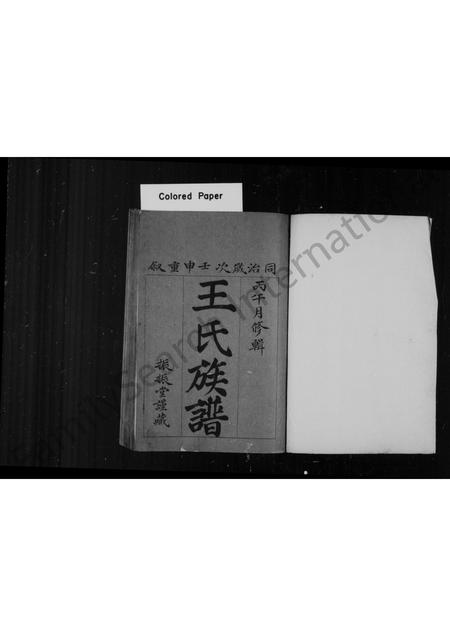 Colored Paper
同治歲次壬申重叙
丙午月修輯
王氏族譜
振振堂謹藏
FamilySearch International